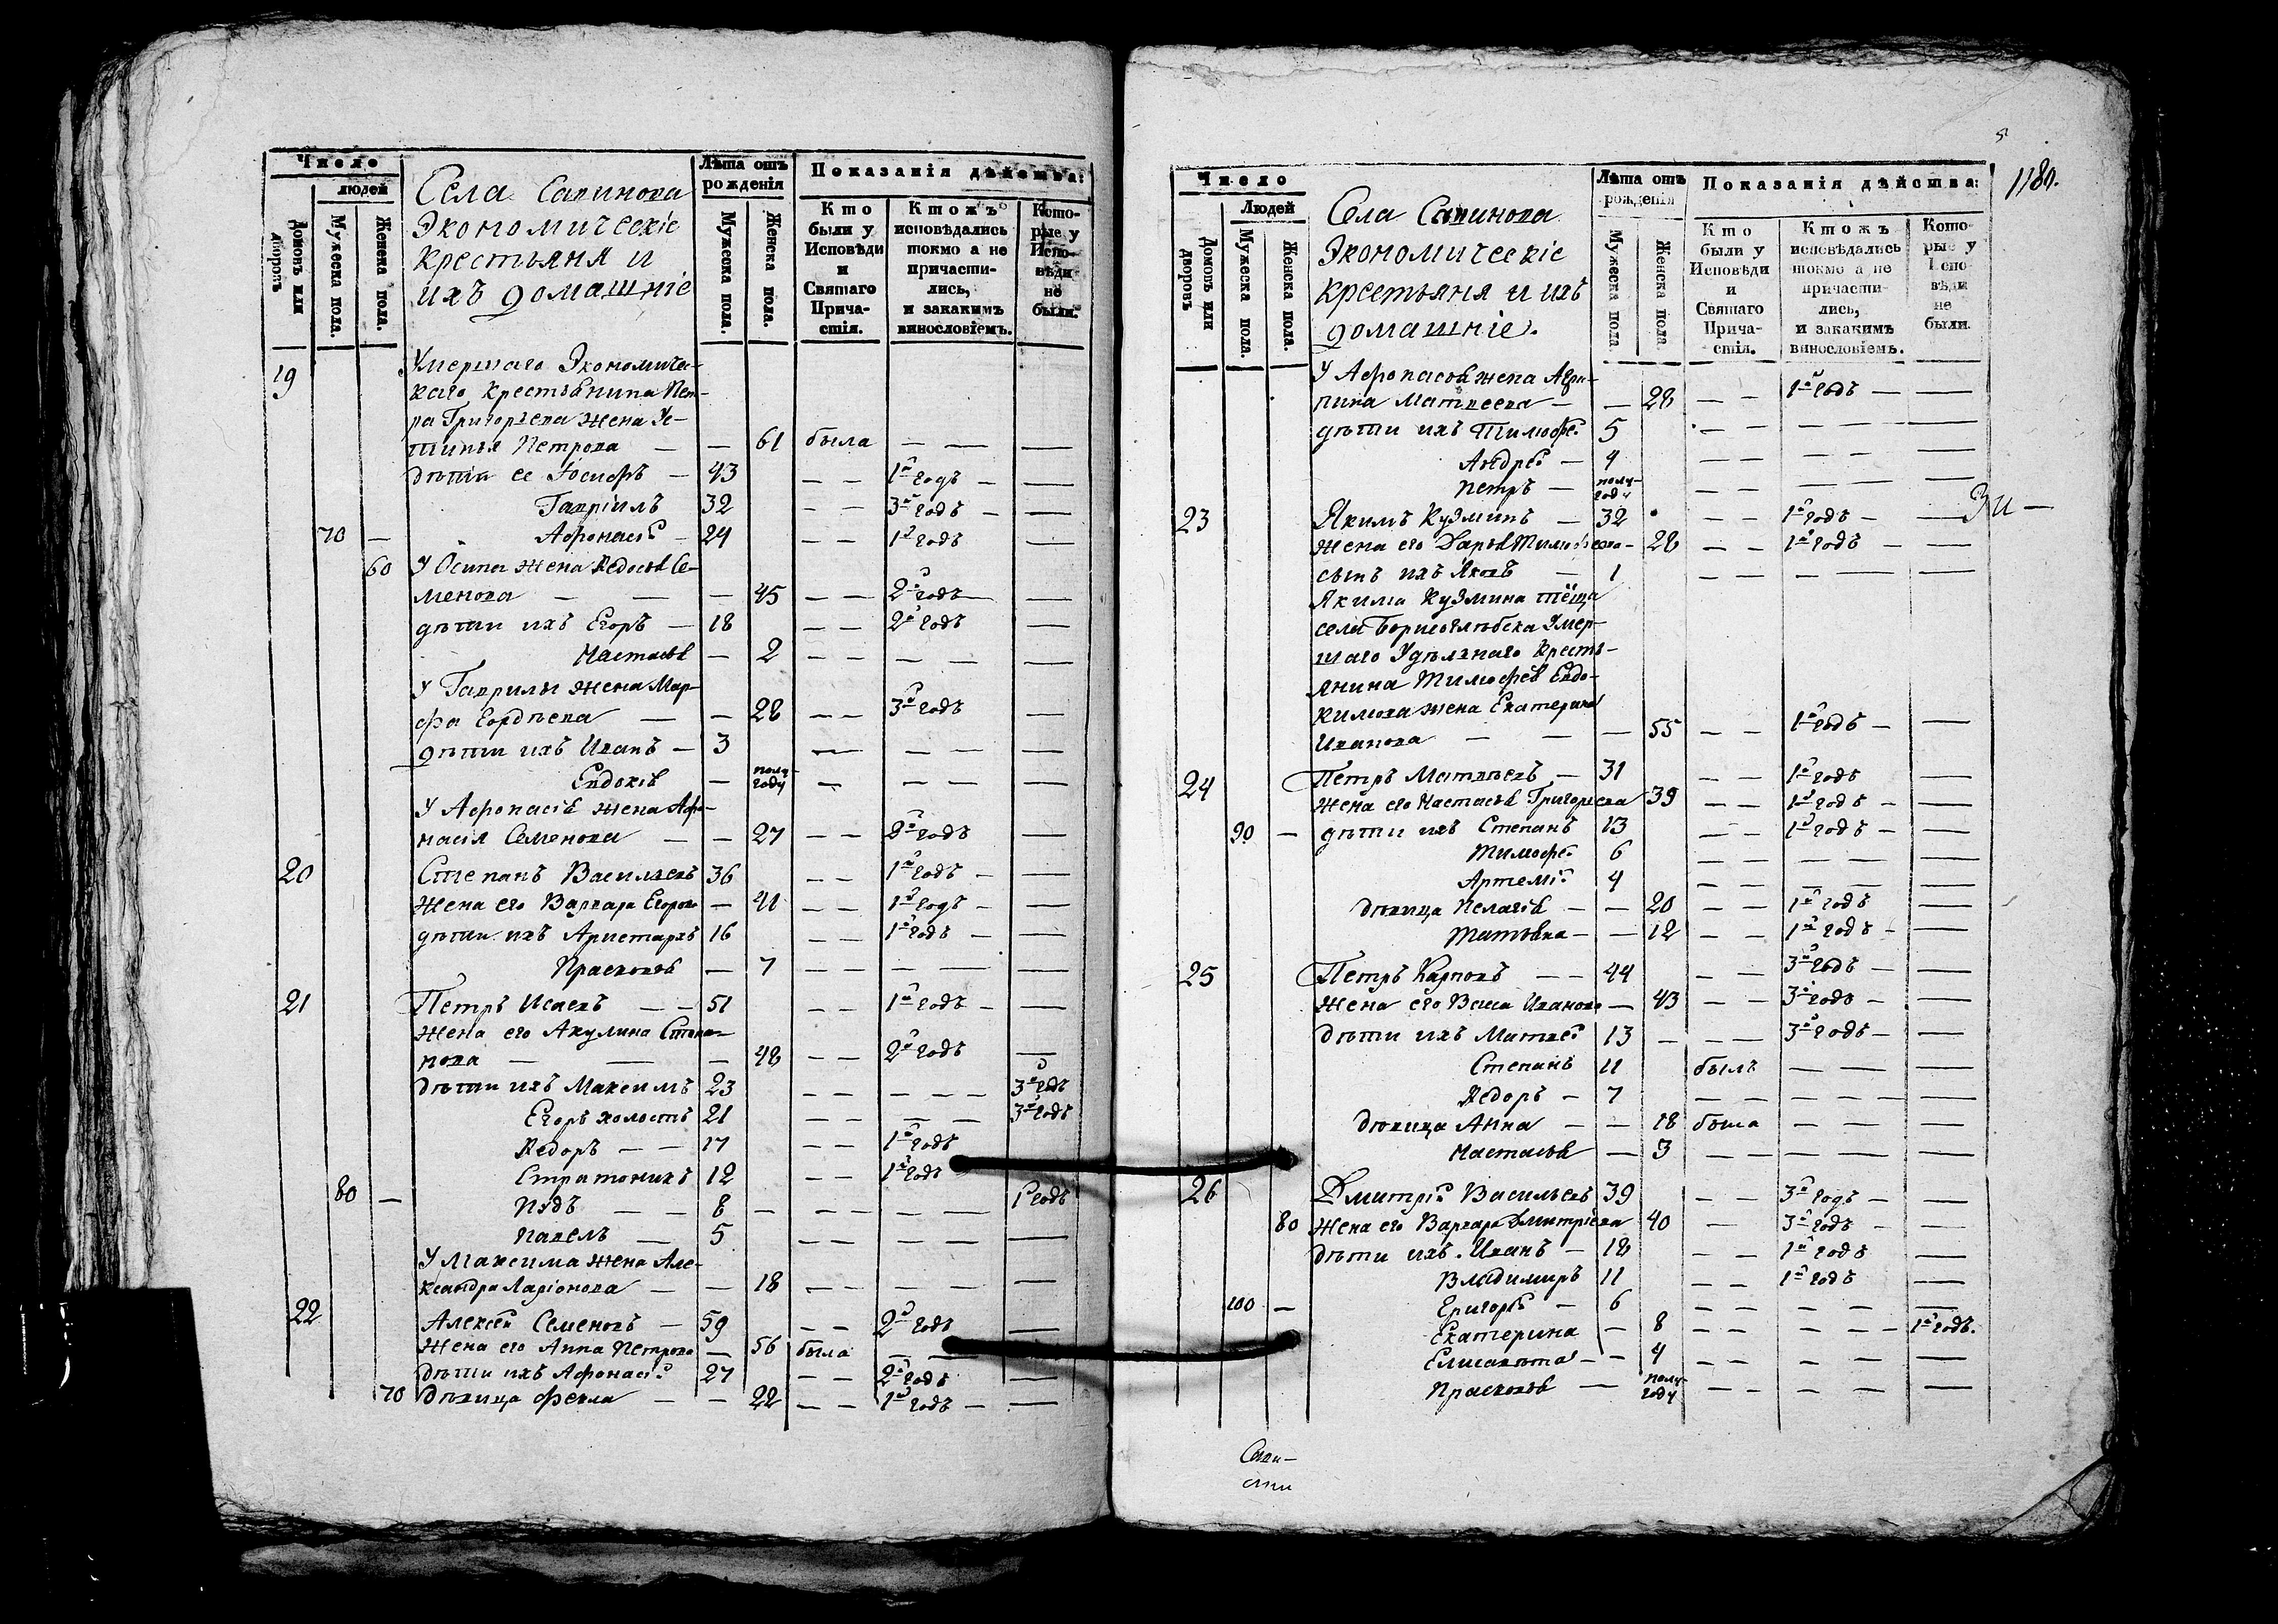 Число
людей
Домовъ или дворовъ
Мужеска пола.
Женска пола.
Села Савинова
Экономическіе
крестьяня и
ихъ домашніе
Лѣта отъ рожденія
Мужеска пола.
Женска пола.
Показанія дѣйства:
Кто были у Исповѣди и Святаго Причастія.
Ктожъ исповѣдались токмо а не причастились, и закакимъ винословіемъ.
Которые у Исповѣди не были.
19 Умершаго Экономичес-
каго крестьянина Пет-
ра Григорьева жена Ус-
тинья Петрова — — 61 была — — —
дѣти ее Іосифъ — 43 — — 1й годъ — —
Гавріилъ 32 — — 3й годъ — —
70 — Афонасій — 24 — — 1й годъ —
60 У Осипа жена Ѳедосья Се-
менова — — — 45 — — 2й годъ —
дѣти ихъ Егоръ — 18 — — 2й годъ —
Настасья — 2 — — — — —
У Гаврилы жена Мар-
фа Гордѣева — — 28 — — 3й годъ —
дѣти ихъ Иванъ — 3 — — — —
Евдокія — полу-
году — — — —
У Афонасія жена Афо-
насія Семенова — — 27 — — 2й годъ —
20 Степанъ Васильевъ 36 — — 1й годъ — —
жена его Варвара Егорова — 41 — — 1й годъ — —
дѣти ихъ Аристархъ 16 — — 1й годъ — —
Прасковья — 7 — — — — —
21 Петръ Исаевъ — — 51 — — 1й годъ — —
жена его Акулина Степа-
нова — — — 48 — — 2й годъ —
дѣти ихъ Максимъ 23 — — — — — 3й годъ
Егоръ холостъ 21 — — — — 3й годъ
Ѳедоръ — — 17 — — 1й годъ
Стратоникъ 12 — — 1й годъ
80 — Пудъ — — 8 — — — — — — 1й годъ
Павелъ — 5 — — — — —
У Максима жена Але-
ксандра Ларіонова — — 18 — — — — —
22 Алексѣй Семеновъ — 59 — — 2й годъ —
Жена его Анна Петрова — 56 была — —
дѣти ихъ Афонасій 27 — — 2й годъ —
70 дѣвица Фекла — — 22 — — 1й годъ — —
1180.
Число
Людей
Домовъ или дворовъ
Мужеска пола.
Женска пола.
Села Савинова
Экономическіе
крестьяня и ихъ
домашніе.
Лѣта отъ рожденія
Мужеска пола
Женска пола
Показанія дѣйства:
Кто были у Исповѣди и Святаго Причастія.
Ктожъ исповѣдались токмо а не причастились, и закакимъ винословіемъ.
Которые у Исповѣди не были.
У Афонасья жена Агри-
пина Матвеева — — 28 — — 1й годъ — —
дѣти ихъ Тимофей 5 — — — — —
Андрей — 4 — — — — —
Петръ — полу-
году — — — — —
23 Якимъ Кузминъ — 32 — — 1й годъ — —
жена его Дарья Тимофеева — 28 — — 1й годъ — —
сынъ ихъ Яковъ — 1 — — — — —
Якима Кузмина тёща
села Борисоглѣбска Умер-
шаго Удѣльнаго Кресть-
янина Тимофея Евдо-
кимова жена Екатерина
Иванова — — — 55 — — 1й годъ — —
24 Петръ Матвѣевъ — 31 — — 1й годъ —
жена его Настасья Григорьева 39 — — 1й годъ — —
90 — дѣти ихъ Степанъ 13 — — 1й годъ — —
Тимофей 6 — — — — —
Артемій 4 — — — — —
дѣвица Пелагія — — 20 — — 1й годъ —
Татьяна — — 12 — — 1й годъ — —
25 Петръ Карповъ — — 44 — — 3й годъ — —
жена его Васа Иванова — 43 — — 3й годъ — —
дѣти ихъ Матвей 13 — — — 3й годъ — —
Степанъ 11 былъ — — — —
Ѳедоръ — 7 — — — — — —
дѣвица Анна — — 18 была — — —
Настасья — 3 — — — — — —
26 Дмитрій Васильевъ 39 — — 3й годъ — —
80 жена его Варвара Дмитріева 40 — 3й годъ — —
дѣти ихъ Иванъ — 18 — — 1й годъ —
Владимиръ 11 — — 1й годъ —
100 — Григорій — 6 — — — — —
Екатерина — 8 — — — — — 1й годъ.
Елисавета — — 4 — — — — —
Прасковья — полу-
году — — — — —